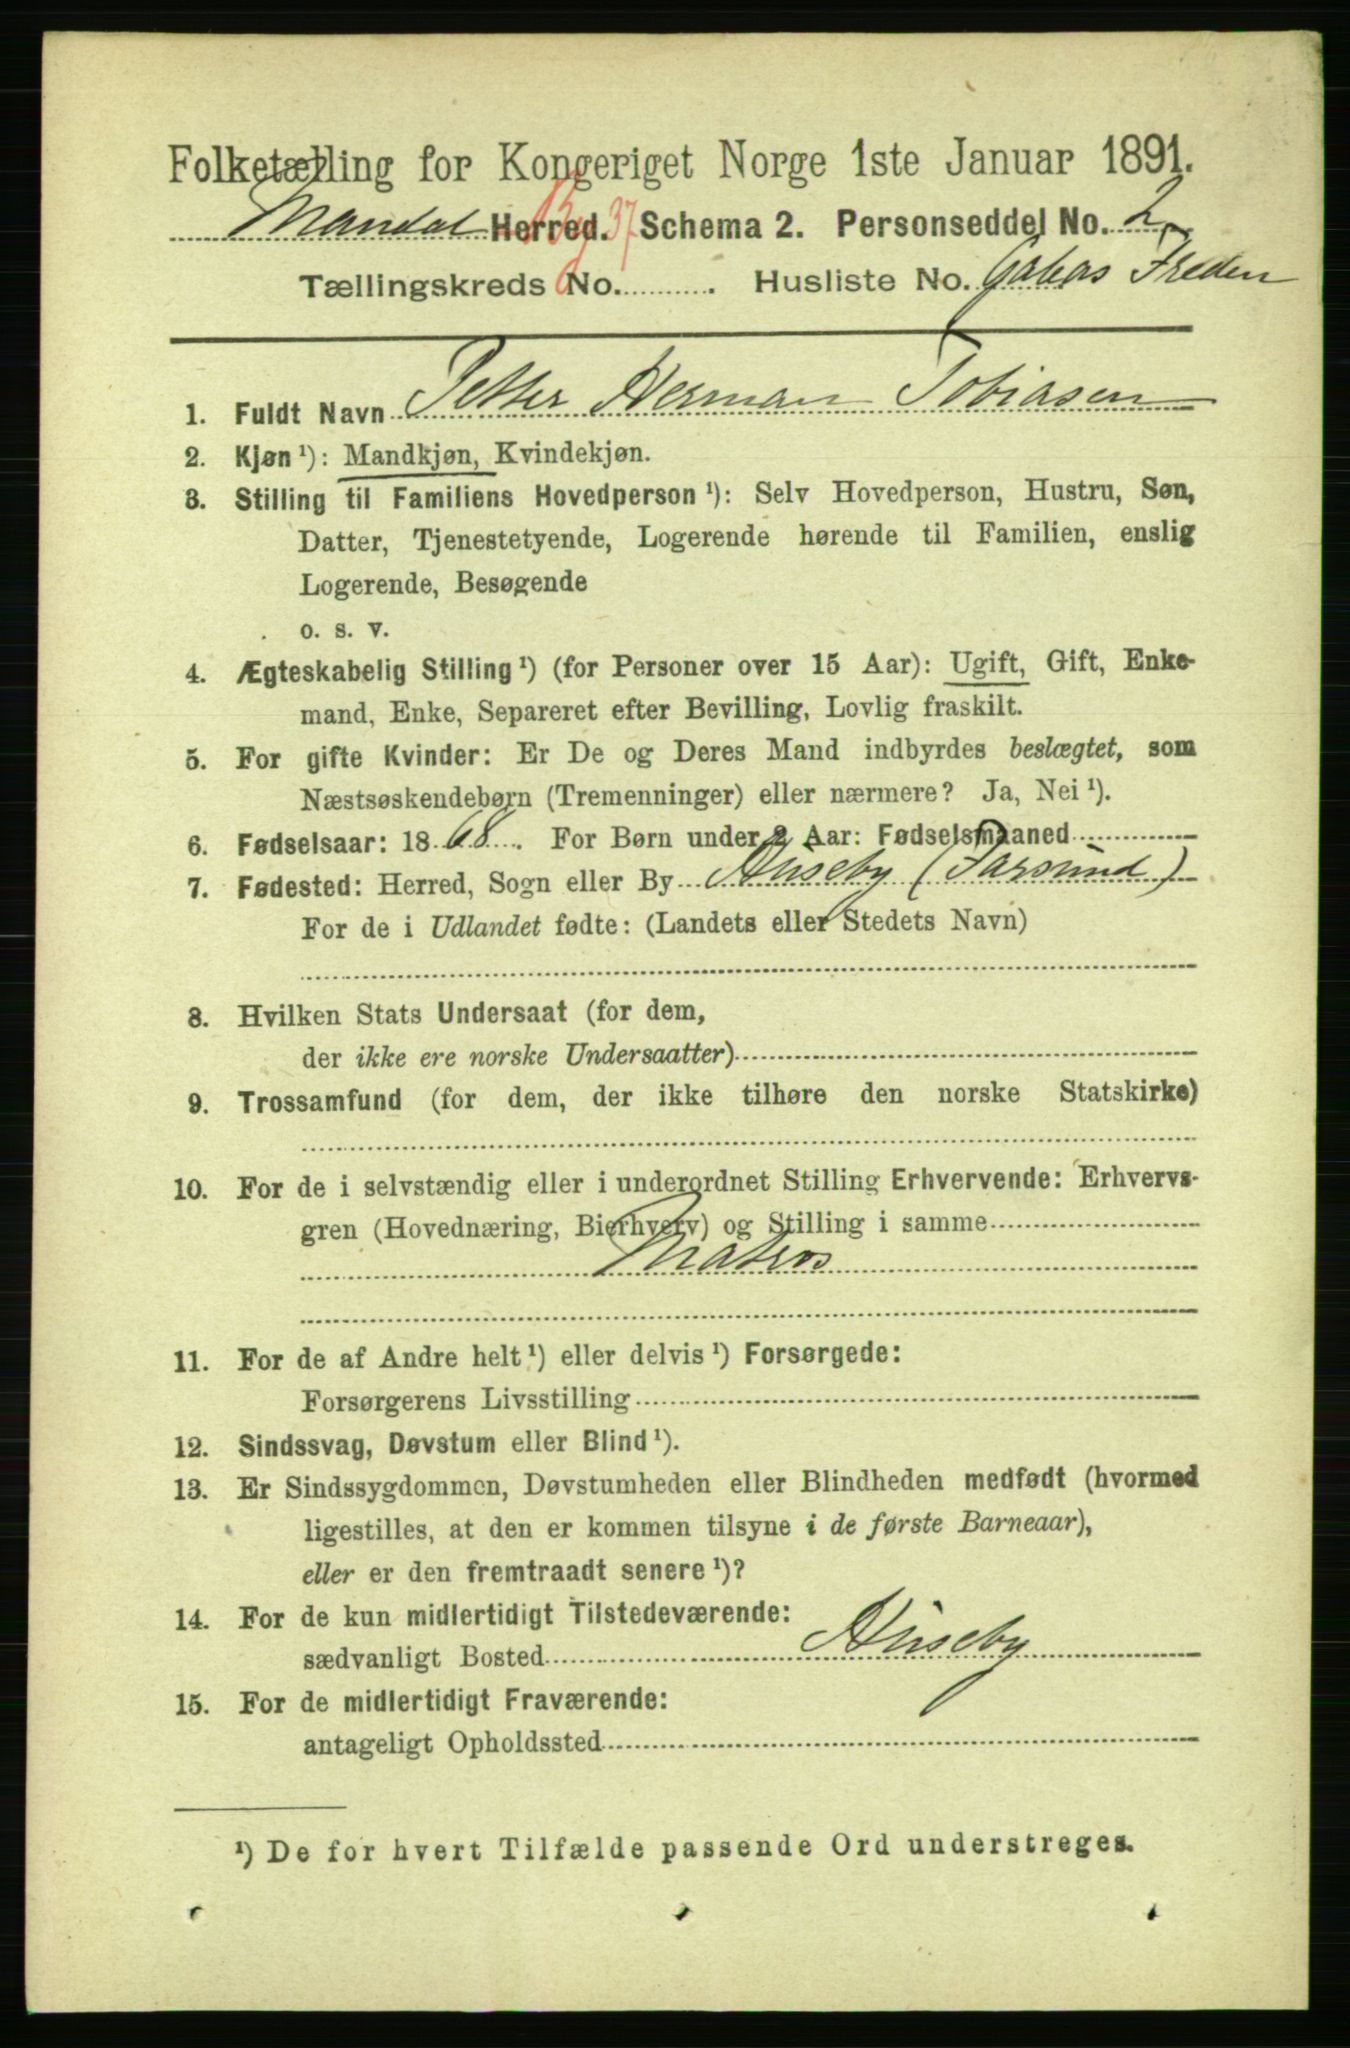 Folketælling for Kongeriget Norge 1ste Januar 1891.
Mandal Herred. By 37 Schema 2. Personseddel No. 2
Tællingskreds No. ........... Husliste No. Galeas Freden
1. Fuldt Navn Petter Herman Tobiasen
2. Kjøn ¹): Mandkjøn, Kvindekjøn.
3. Stilling til Familiens Hovedperson ¹): Selv Hovedperson, Hustru, Søn,
Datter, Tjenestetyende, Logerende hørende til Familien, enslig
Logerende, Besøgende
o. s. v.
4. Ægteskabelig Stilling ¹) (for Personer over 15 Aar): Ugift, Gift, Enke-
mand, Enke, Separeret efter Bevilling, Lovlig fraskilt.
5. For gifte Kvinder: Er De og Deres Mand indbyrdes beslægtet, som
Næstsøskendebørn (Tremenninger) eller nærmere? Ja, Nei ¹).
6. Fødselsaar: 1868. For Børn under 2 Aar: Fødselsmaaned
7. Fødested: Herred, Sogn eller By Huseby (Farsund)
For de i Udlandet fødte: (Landets eller Stedets Navn)
8. Hvilken Stats Undersaat (for dem,
der ikke ere norske Undersaatter)
9. Trossamfund (for dem, der ikke tilhøre den norske Statskirke)
10. For de i selvstændig eller i underordnet Stilling Erhvervende: Erhvervs-
gren (Hovednæring, Bierhverv) og Stilling i samme
Matros
11. For de af Andre helt ¹) eller delvis ¹) Forsørgede:
Forsørgerens Livsstilling
12. Sindssvag, Døvstum eller Blind ¹).
13. Er Sindssygdommen, Døvstumheden eller Blindheden medfødt (hvormed
ligestilles, at den er kommen tilsyne i de første Barneaar),
eller er den fremtraadt senere ¹)?
14. For de kun midlertidigt Tilstedeværende:
sædvanligt Bosted Huseby
15. For de midlertidigt Fraværende:
antageligt Opholdssted
¹) De for hvert Tilfælde passende Ord understreges.